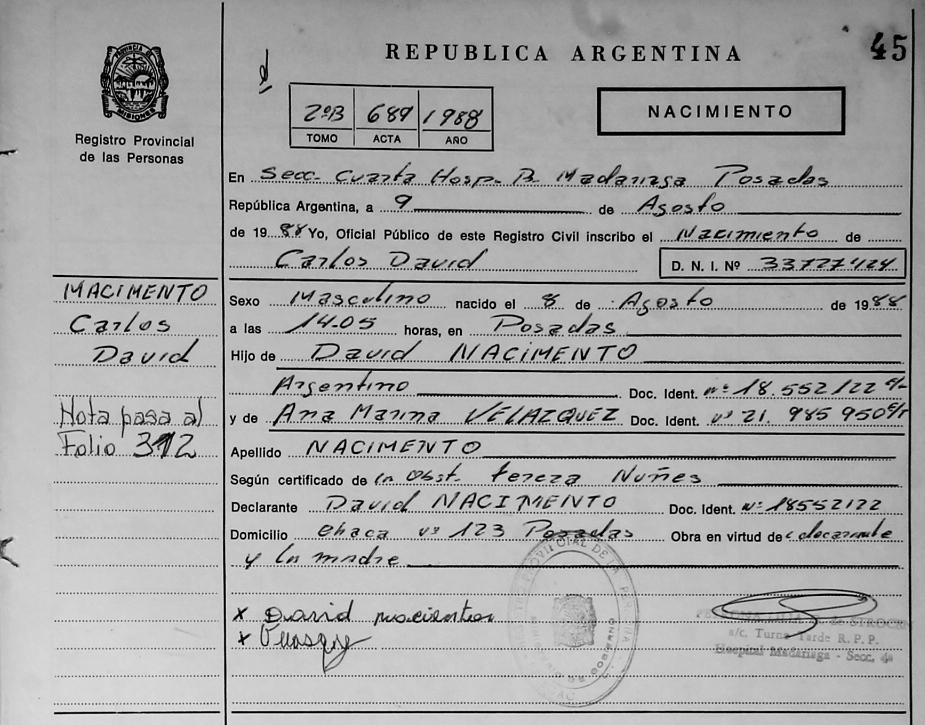 REPUBLICA ARGENTINA
45
PROVINCIA DE MISIONES
Registro Provincial
de las Personas
2ºB 689 1988
TOMO ACTA AÑO
NACIMIENTO
En Secc. Cuarta Hosp. R. Madariaga Posadas
República Argentina, a 9 de Agosto
de 1988 Yo, Oficial Público de este Registro Civil inscribo el Nacimiento de
Carlos David D. N. I. Nº 33727424
Sexo Masculino nacido el 8 de Agosto de 1988
a las 14.05 horas, en Posadas
Hijo de David NACIMENTO
Argentino Doc. Ident. nº 18.552122
y de Ana Marina VELAZQUEZ Doc. Ident. nº 21.985950
Apellido NACIMENTO
Según certificado de la Obst. tereza Nuñes
Declarante David NACIMENTO Doc. Ident. nº 18552122
Domicilio chaca nº 123 Posadas Obra en virtud de
y la madre
MACIMENTO
Carlos
David
Nota pasa al
Folio 312
x David
x
a/c. Turno Tarde R. P. P.
Hospital Madariaga - Secc. 4ª